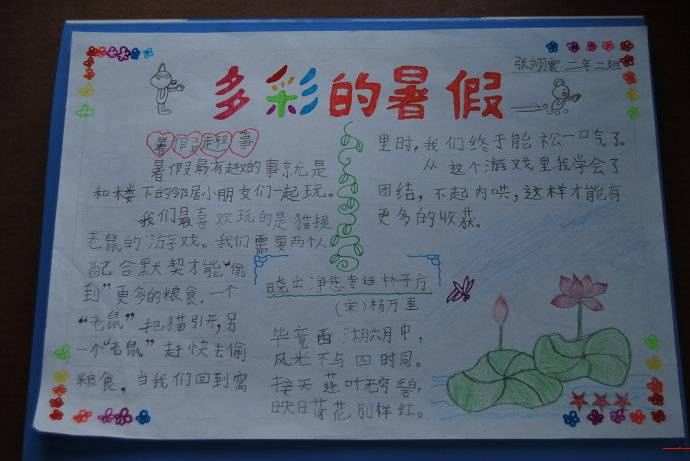 多彩的暑假
二年二班
暑假趣事
暑假最有趣的事就是
和楼下的邻居小朋友们一起玩。
我们最喜欢玩的是猫捉
老鼠的游戏。我们需要两人
配合默契才能“偷
到”更多的粮食。一个
“老鼠”把猫引开,另
一个“老鼠”赶快去偷
粮食。当我们回到窝
里时,我们终于能松一口气了。
从这个游戏里我学会了
团结,不起内哄,这样才能有
更多的收获。
晓出净慈寺送林子方
(宋)杨万里
毕竟西湖六月中,
风光不与四时同。
接天莲叶无穷碧,
映日荷花别样红。